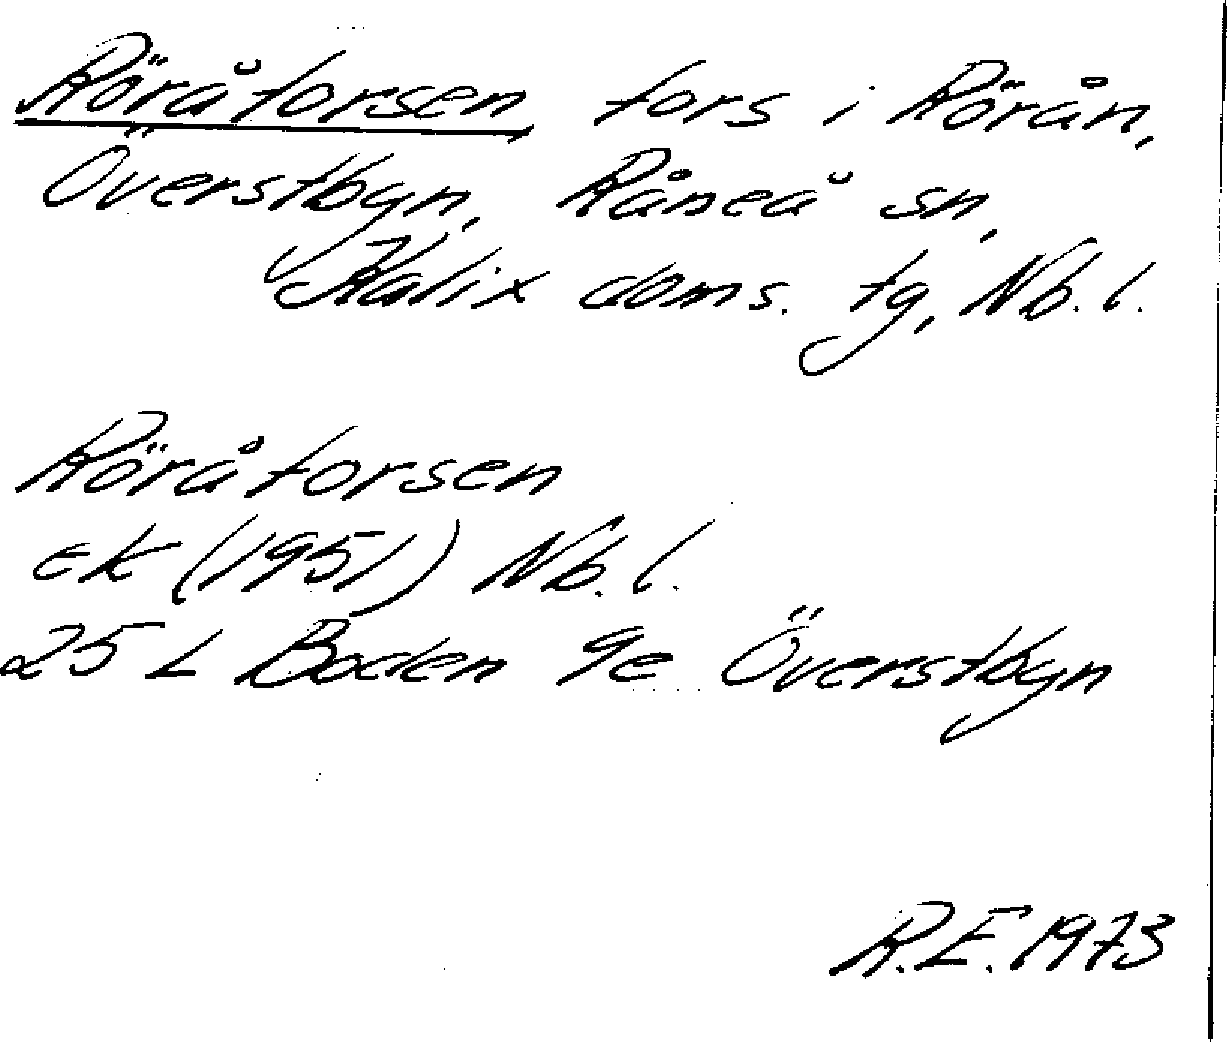 Röråforsen, fors i Rörån,
Överstbyn, Råneå sn,
Kalix doms. tg, Nb. l.
Röråforsen
EK (1951) Nb. l.
25 L Boden 9e Överstbyn
R.E. 1973